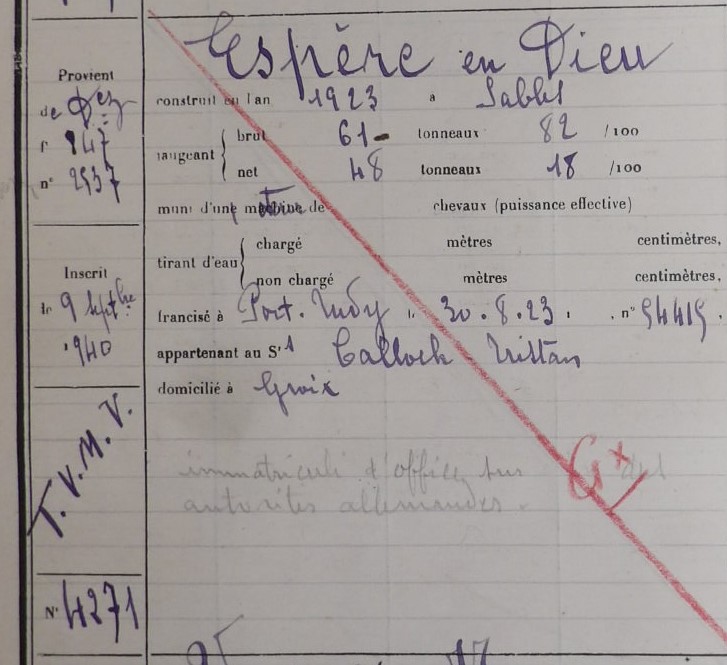 Espère en Dieu
Provient
de Dez
f° 847
n° 2937
construit en l'an 1923 à Sables
jaugeant
brut 61 - tonneaux 82 /100
net 48 tonneaux 18 /100
muni d'une machine de chevaux (puissance effective)
tirant d'eau
chargé mètres centimètres,
non chargé mètres centimètres,
Inscrit
le 9 Septbre
1940
francisé à Port. Tudy le 30.8.23, n° 94415.
appartenant au Sr Calloch Tristan
domicilié à Groix
T.V.M.V.
immatriculé d'office sur
autorités allemandes.
Gx
N° 4271